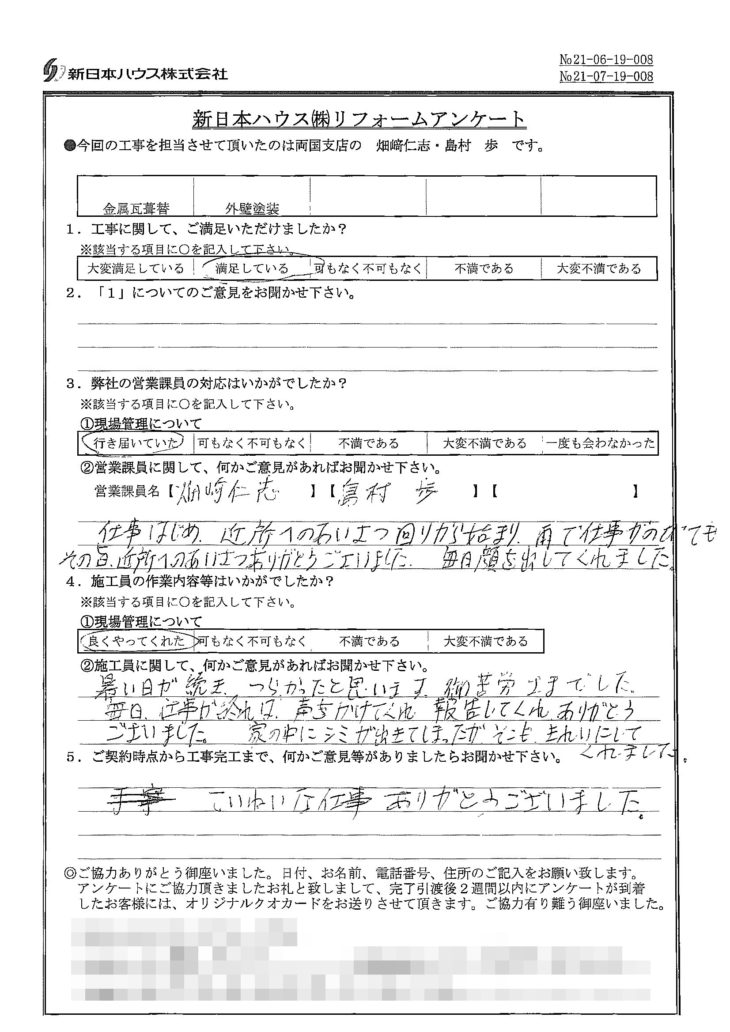 新日本ハウス株式会社
No21-06-19-008
No21-07-19-008
新日本ハウス㈱リフォームアンケート
●今回の工事を担当させて頂いたのは両国支店の 畑﨑仁志・島村 歩 です。
金属瓦葺替 外壁塗装
1．工事に関して、ご満足いただけましたか？
※該当する項目に○を記入して下さい。
大変満足している 満足している 可もなく不可もなく 不満である 大変不満である
2．「1」についてのご意見をお聞かせ下さい。
3．弊社の営業課員の対応はいかがでしたか？
※該当する項目に○を記入して下さい。
①現場管理について
行き届いていた 可もなく不可もなく 不満である 大変不満である 一度も会わなかった
②営業課員に関して、何かご意見があればお聞かせ下さい。
営業課員名【畑崎仁志 】【島村 歩 】【 】
仕事はじめ、近所へのあいさつ回りから始まり、雨で仕事がのびても
その旨、近所へのあいさつありがとうございました。毎日顔を出してくれました。
4．施工員の作業内容等はいかがでしたか？
※該当する項目に○を記入して下さい。
①現場管理について
良くやってくれた 可もなく不可もなく 不満である 大変不満である
②施工員に関して、何かご意見があればお聞かせ下さい。
暑い日が続き、つらかったと思います。御苦労さまでした。
毎日、仕事が終れば、声をかけてくれ 報告してくれ ありがとう
ございました。 家の中にシミが出きてしまったがそこも、きれいにして
くれました。
5．ご契約時点から工事完工まで、何かご意見等がありましたらお聞かせ下さい。
ていねいな仕事 ありがとうございました。
◎ご協力ありがとう御座いました。日付、お名前、電話番号、住所のご記入をお願い致します。
アンケートにご協力頂きましたお礼と致しまして、完了引渡後２週間以内にアンケートが到着
したお客様には、オリジナルクオカードをお送りさせて頂きます。ご協力有り難う御座いました。